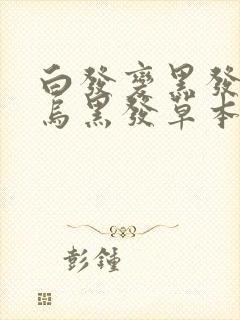 白發變黑發
烏黑發草本
彭鍾